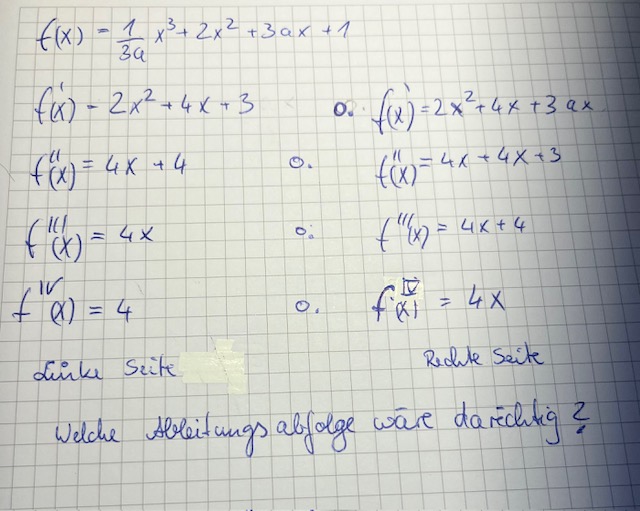 f(x) = 1/3a x³ + 2x² + 3ax + 1
f'(x) = 2x² + 4x + 3 o. f'(x) = 2x² + 4x + 3ax
f''(x) = 4x + 4 o. f''(x) = 4x + 4x + 3
f'''(x) = 4x o. f'''(x) = 4x + 4
f^IV(x) = 4 o. f^IV(x) = 4x
Linke Seite Rechte Seite
Welche Ableitungsabfolge wäre da richtig?